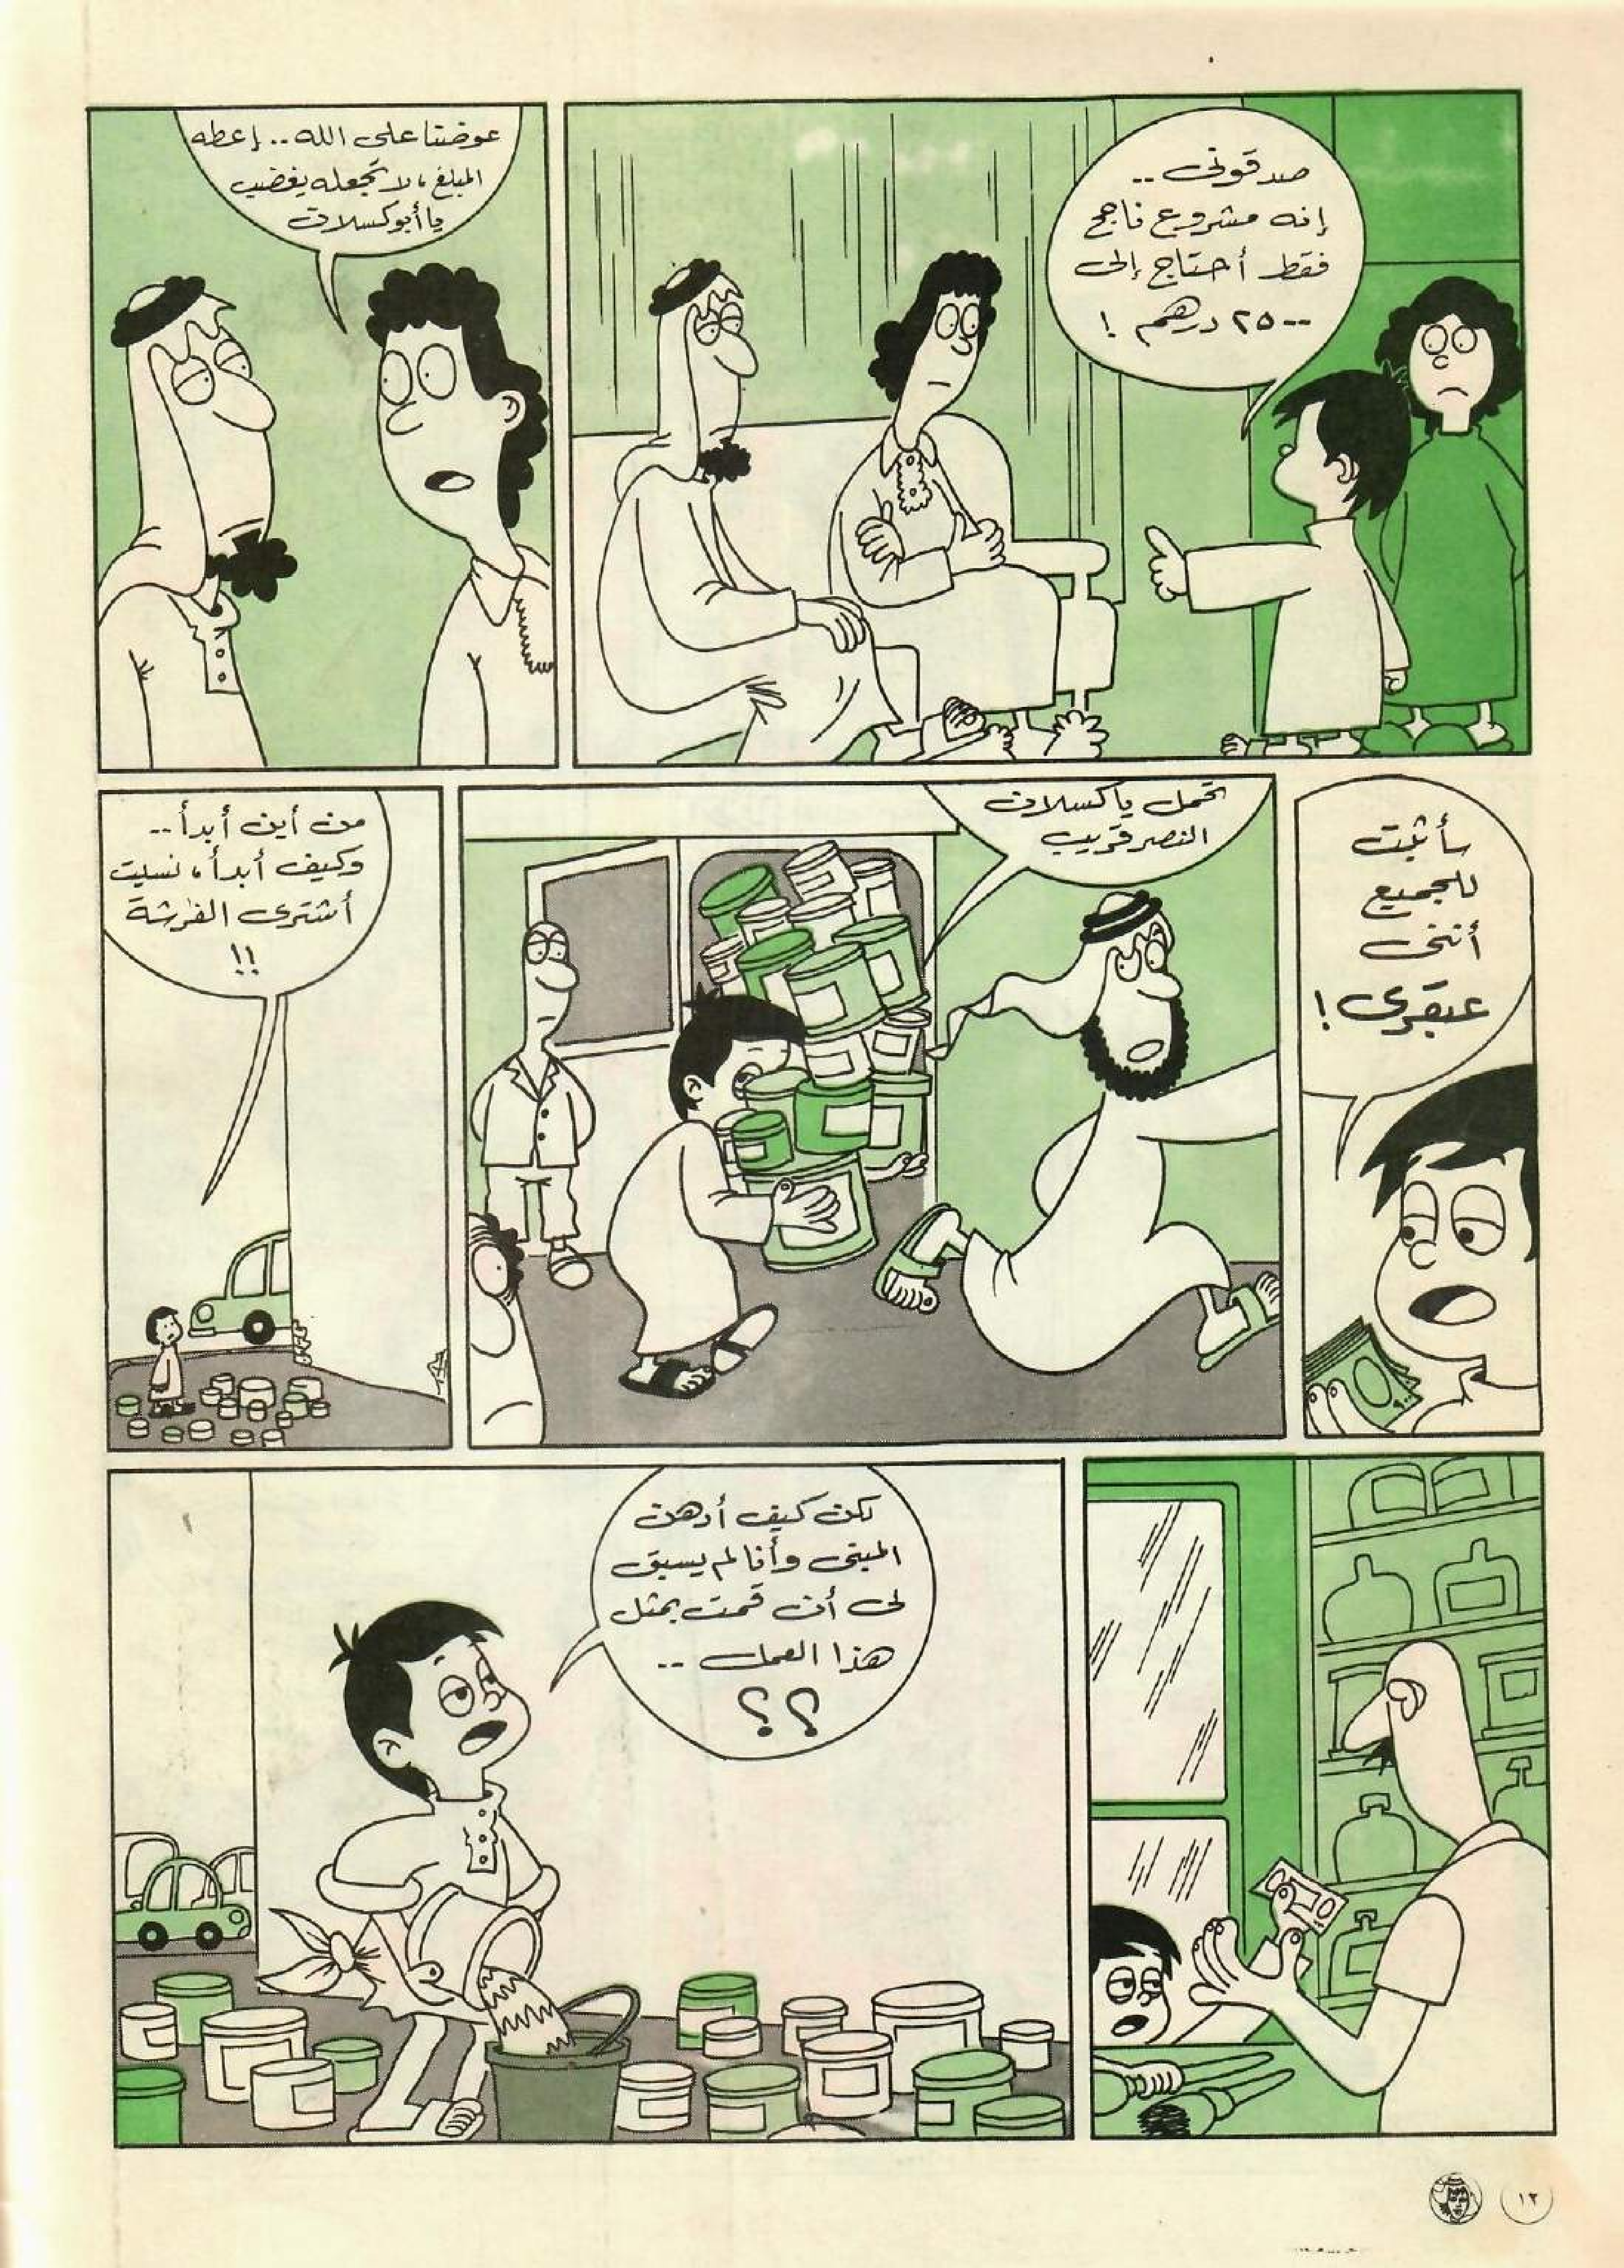 صدقوني ..
إنه مشروع ناجح
فقط أحتاج إلى
٢٥٠٠ درهم !
عوضتنا على الله .. إعطه
المبلغ ، لا تجعله يغضب
يا أبوكسلان
سأثبت
للجميع
أنني
عبقري !
تحمل ياكسلان
النصر قريب
من أين أبدأ ..
وكيف أبدأ ، نسيت
أشترى الفرشة
!!
لكن كيف أدهن
المبنى وأنا لم يسبق
لي أن قمت بمثل
هذا العمل ..
؟؟
١٢